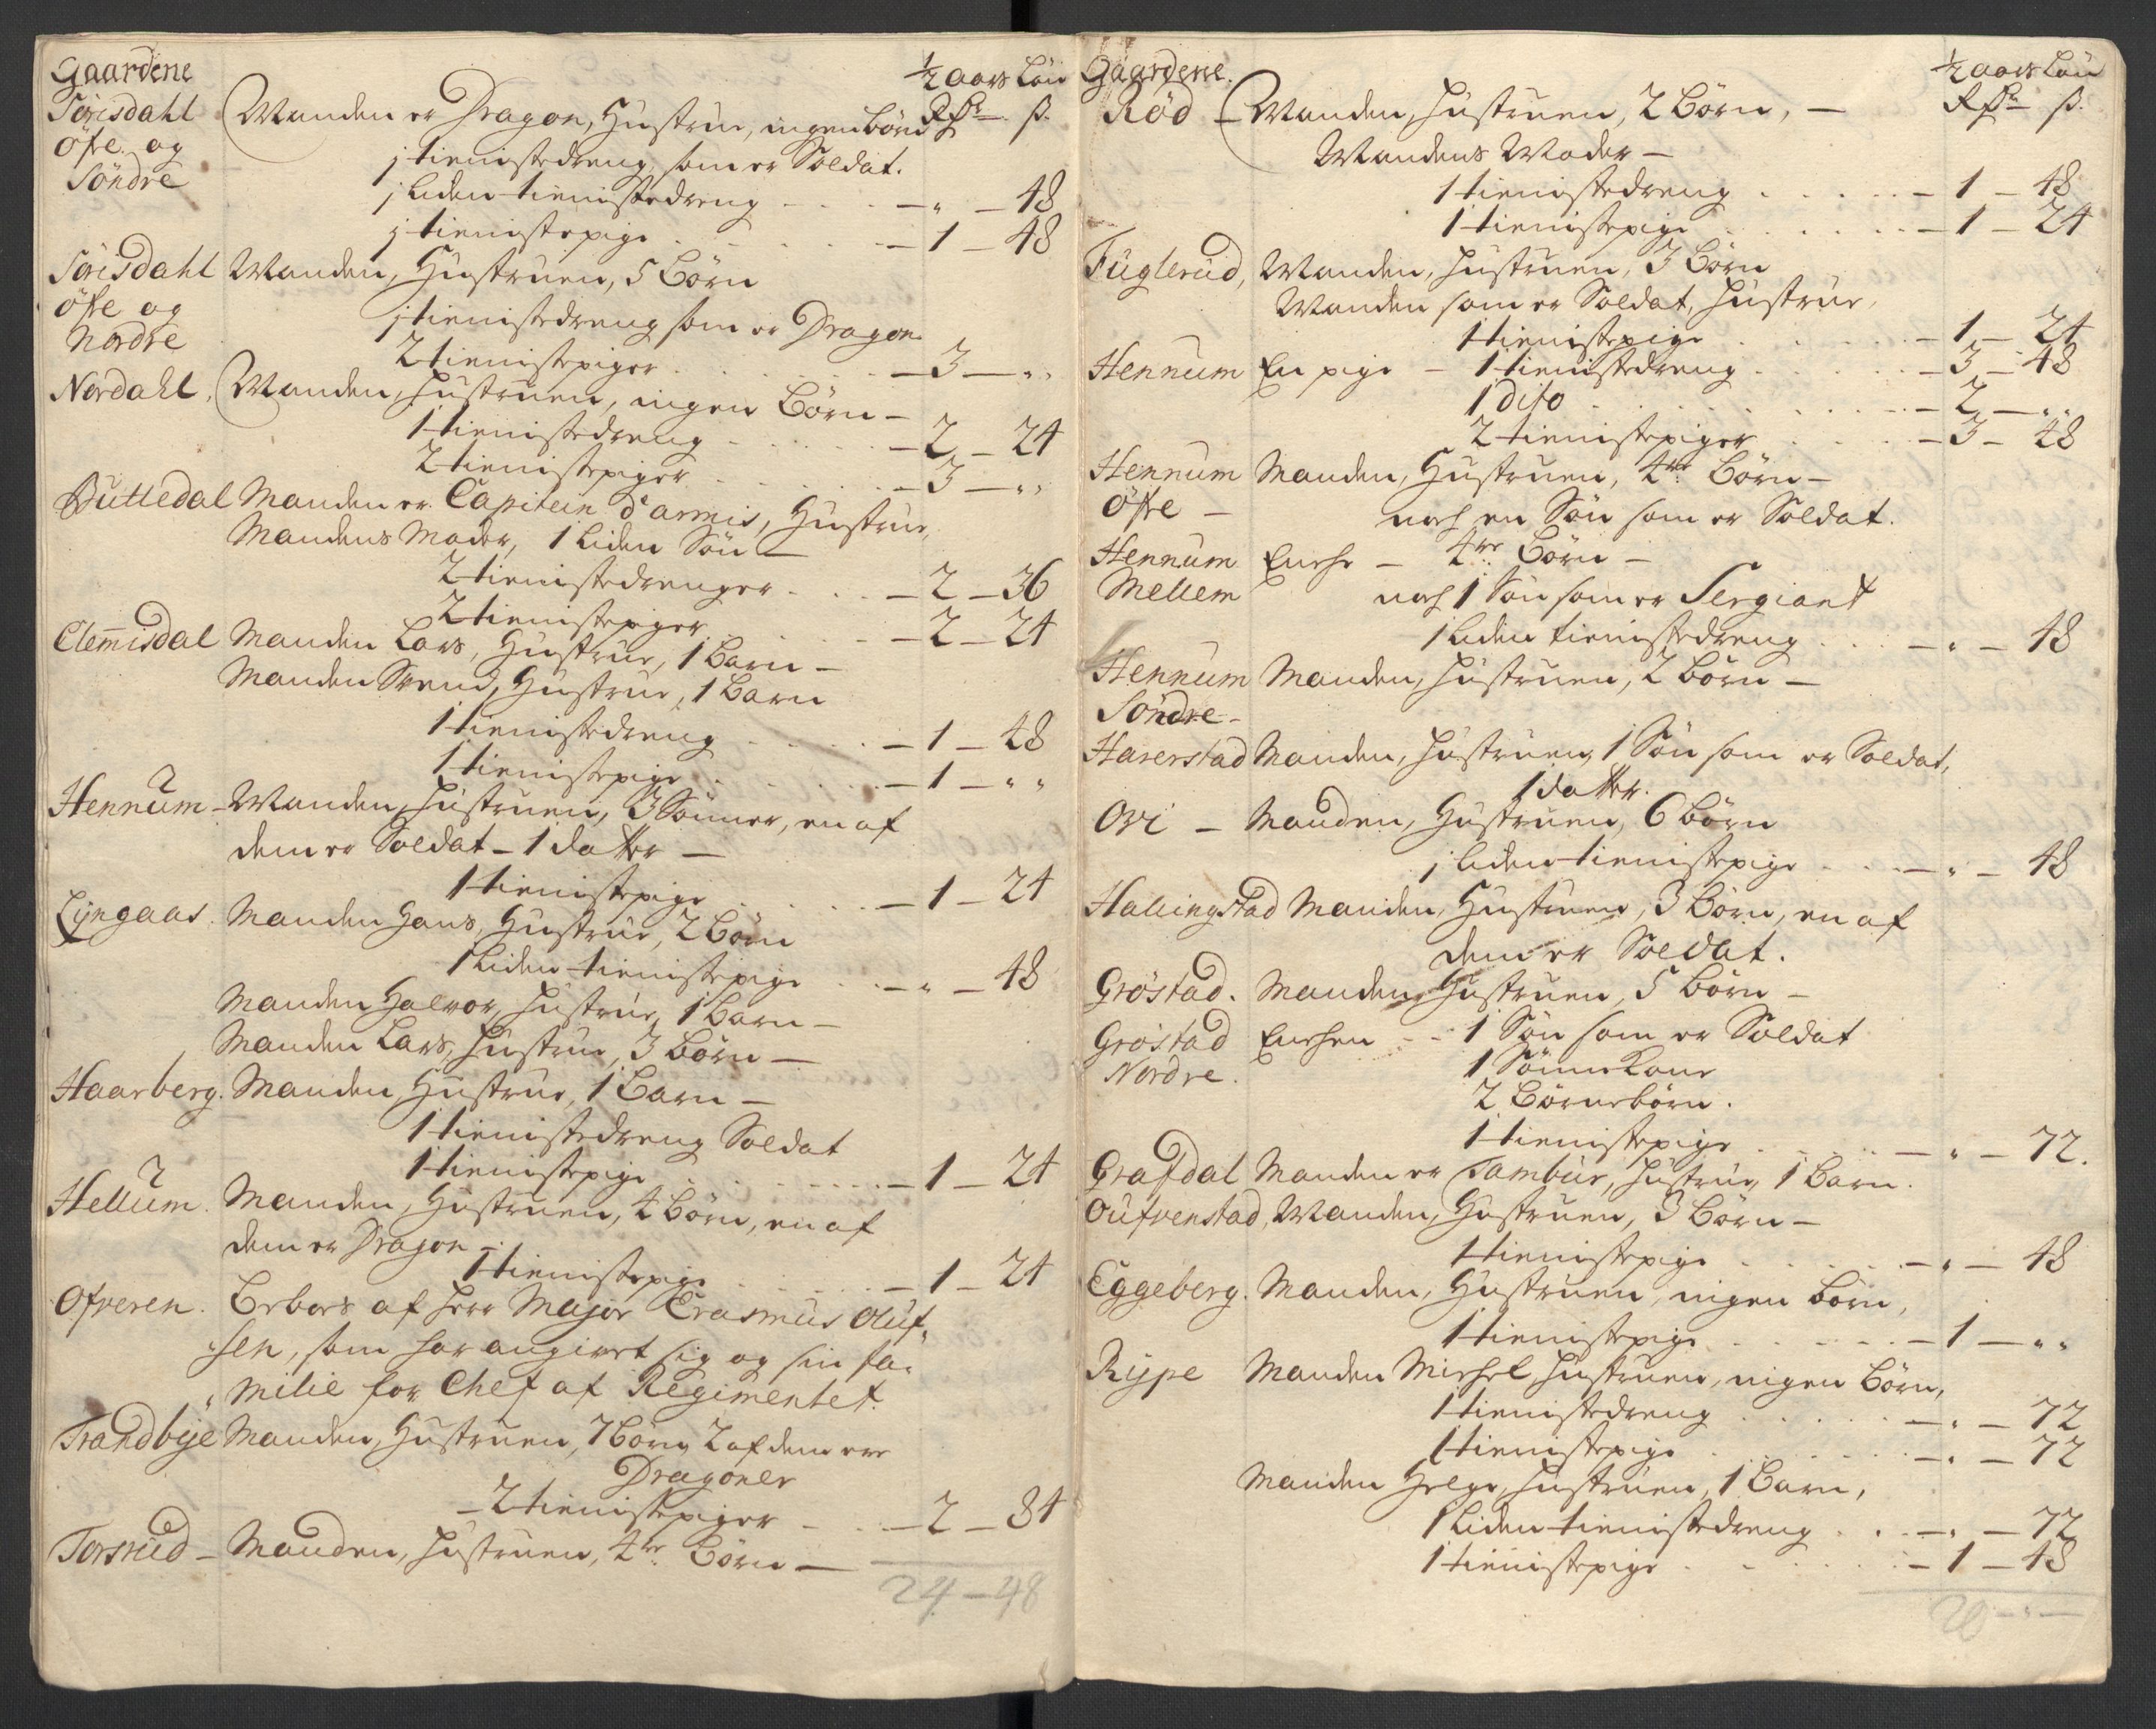 Gaardene ½ aars Løn
Sørisdahl Manden er Dragon, Hustrue, ingen børn Rdr ß.
øfre og 1 tienistedreng som er Soldat.
Söndre 1 liden tienistedreng - „ - 48
1 tienistepige - 1 - 48
Sørisdahl Manden, Hustruen, 5 Börn
öfre og 1 tienistedreng som er Dragon.
Nordre 2 tienistepiger - 3 - „
Nordahl. Manden, Hustruen, ingen Börn -
1 tienistedreng - 2 - 24
2 tienistepiger - 3 - „
Duttedal Manden er Capitein d'armis, Hustrue,
Mandens Moder, 1 liden Sön -
2 tienistedrenger - 2 - 36
2 tienistepiger - 2 - 24
Clemisdal Manden Lars, Hustrue, 1 Barn -
Manden Svend, Hustrue, 1 Barn
1 tienistedreng - 1 - 48
1 tienistepige - 1 - „
Hennum - Manden, Hustruen, 3 Sönner, en af
dem er Soldat - 1 datter -
1 tienistepige - 1 - 24
Lyngaas. Manden Hans, Hustrue, 2 Börn
1 liden tienistepige - „ - 48
Manden Halvor, Hustrue, 1 Barn -
Manden Lars, Hustrue, 3 börn -
Haarberg. Manden, Hustrue, 1 Barn -
1 tienistedreng Soldat
1 tienistepige - 1 - 24
Hellum. Manden, Hustruen, 4 Börn, en af
dem er Dragon -
1 tienistepige - 1 - 24
Ofveren. Beboes af Herr Major Erasmus Oluf„
sen, som har angivet sig og sin fa„
„milie for Chef af Regimentet.
Trandbye Manden, Hustruen, 7 börn, 2 af dem ere
Dragoner
- 2 tienistepiger - 2 - 84
Torsrud - Manden, Hustruen, 4re Börn -
24 - 48
Gaardene. ½ aars Løn
Röd - Manden, Hustruen, 2 Börn, - Rdr ß.
Mandens Moder -
1 tienistedreng - 1 - 48
1 tienistepige - 1 - 24
Fuglerud, Manden, Hustruen, 3 Börn
Manden som er Soldat, Hustrue,
1 tienistepige - 1 - 24
Hennum En pige - 1 tienistedreng - 3 - 48
1 dito - 2 - „
2 tienistepiger - 3 - 48
Hennum Manden, Hustruen, 4re Börn -
Öfre - noch en Sön som er Soldat.
Hennum Enche - 4re Börn -
Mellem noch 1 Sön som er Sergiant
1 liden tienistedreng - „ - 48
Hennum Manden, Hustruen, 2 börn -
Söndre -
Haverstad Manden, Hustruen, 1 Sön som er Soldat,
1 datter.
Ovi - Manden, Hustruen, 6 börn
1 liden tienistepige - „ - 48
Hallingstad Manden, Hustruen, 3 Börn, en af
dem er Soldat.
Gröstad. Manden, Hustruen, 5 börn -
Gröstad Enchen - 1 Sön som er Soldat
Nordre. 1 Sönnekone
2 Börnebörn.
1 tienistepige - „ - 72.
Grafdal Manden er Tambur, Hustrue, 1 Barn.
Oufvenstad, Manden, Hustruen, 3 Börn -
1 tienistepige - „ - 48
Eggeberg. Manden, Hustruen, ingen börn,
1 tienistepige - 1 - „
Rype Manden Michel, Hustruen, ingen Börn,
1 tienistedreng - „ - 72
1 tienistepige - „ - 72
Manden Helge, Hustruen, 1 Barn,
1 liden tienistedreng - „ - 72
1 tienistepige - 1 - 48
20 - „ -